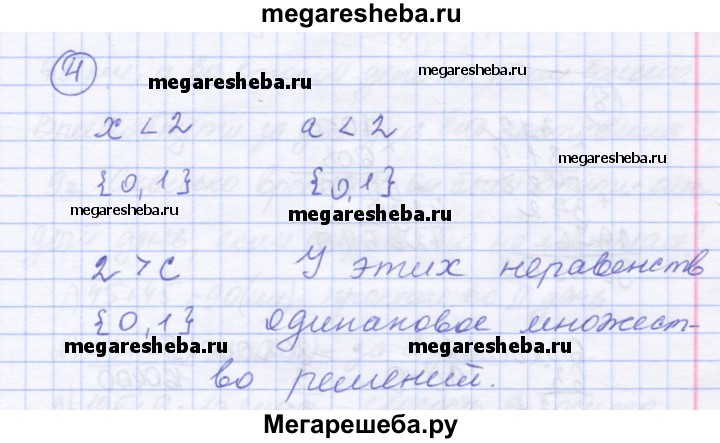 megaresheba.ru
4
megaresheba.ru megaresheba.ru
x < 2 a < 2
megaresheba.ru
{0,1} {0,1}
megaresheba.ru megaresheba.ru
2 > c У этих неравенств
{0,1} одинаковое множест-
megaresheba.ru megaresheba.ru
во решений.
Мегарешеба.ру